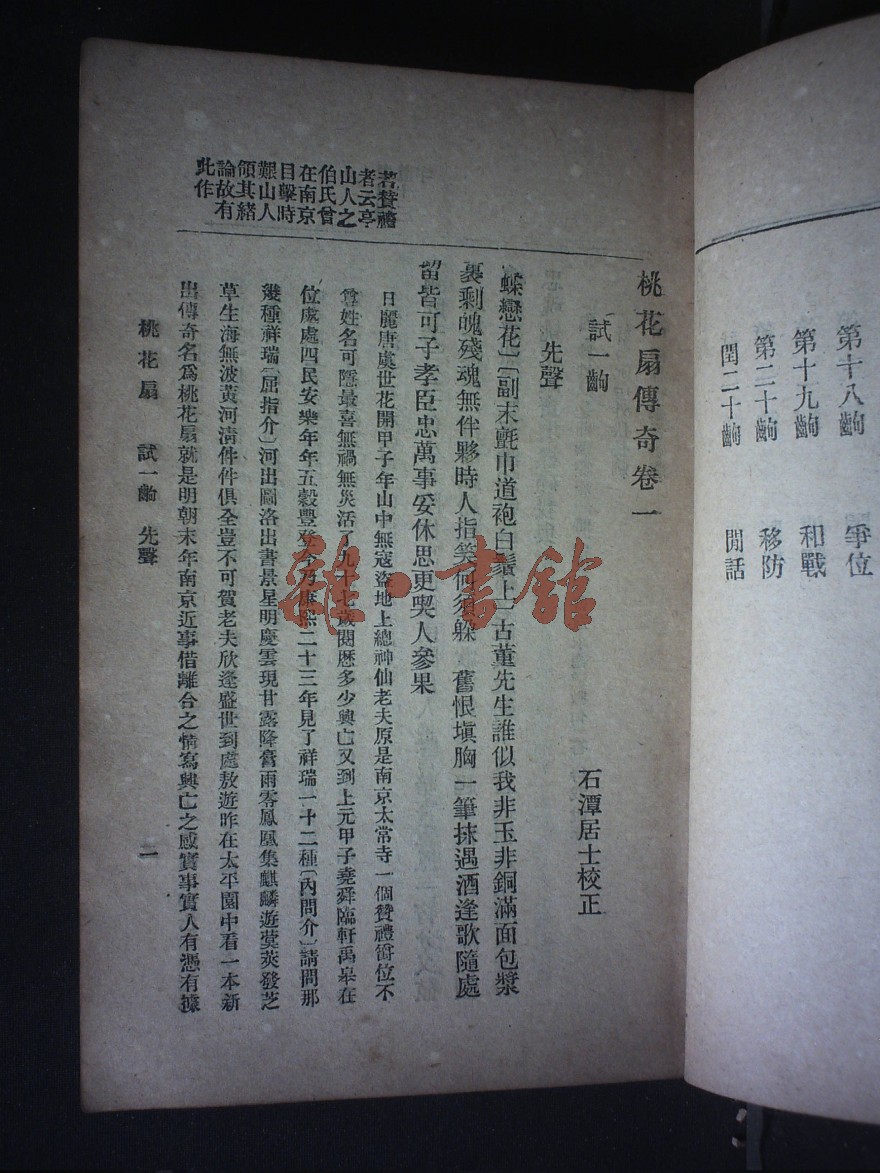 第十八齣 爭位
第十九齣 和戰
第二十齣 移防
閏二十齣 閒話
桃花扇傳奇卷一
石潭居士校正
試一齣
先聲
老贊禮
者云亭
山人之
伯氏曾
在南京
目擊時
艱山人
領其緒
論故有
此作
蝶戀花〕〔副末氈巾道袍白鬚上〕古董先生誰似我非玉非銅滿面包漿
裹剩魄殘魂無伴夥時人指笑何須躲 舊恨塡胸一筆抹遇酒逢歌隨處
留皆可子孝臣忠萬事妥休思更喫人參果
日麗唐虞世花開甲子年山中無寇盜地上總神仙老夫原是南京太常寺一個贊禮爵位不
尊姓名可隱最喜無禍無災活了九十七歲閱歷多少興亡又到上元甲子堯舜臨軒禹皋在
位處處四民安樂年年五穀豐登今乃康熙二十三年見了祥瑞一十二種〔內問介〕請問那
幾種祥瑞〔屈指介〕河出圖洛出書景星明慶雲現甘露降膏雨零鳳凰集麒麟遊蓂莢發芝
草生海無波黃河淸件件俱全豈不可賀老夫欣逢盛世到處敖遊昨在太平園中看一本新
出傳奇名爲桃花扇就是明朝末年南京近事借離合之情寫興亡之感實事實人有憑有據
桃花扇 試一齣 先聲 一
雜·書館